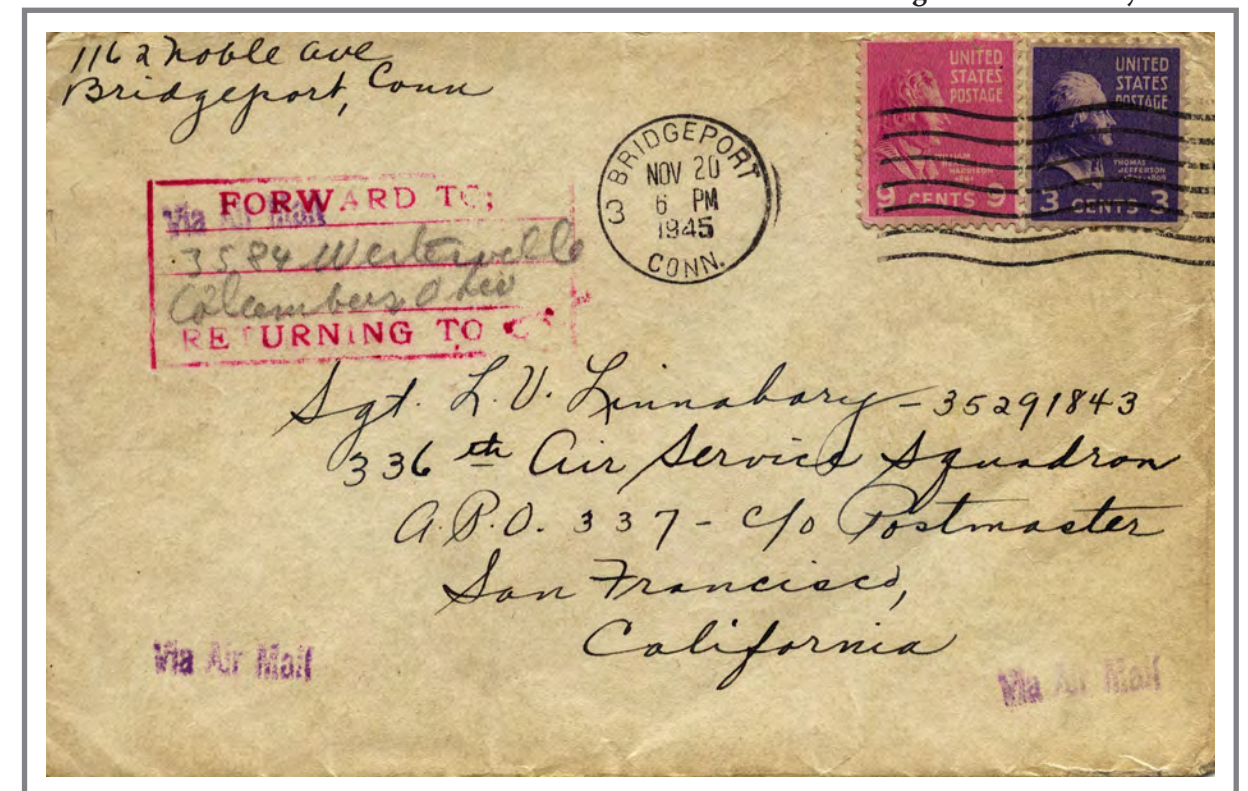 1162 Noble Ave
Bridgeport, Conn
UNITED STATES POSTAGE
WILLIAM HENRY HARRISON
9 CENTS 9
UNITED STATES POSTAGE
THOMAS JEFFERSON
3 CENTS 3
BRIDGEPORT 3
NOV 20
6 PM
1945
CONN.
FORWARD TO;
Via Air Mail
3584 Westerville
Columbus, Ohio
RETURNING TO
Sgt. L. V. Linnabary - 35291843
336th Air Service Squadron
A.P.O. 337 - c/o Postmaster
San Francisco,
California
Via Air Mail
Via Air Mail